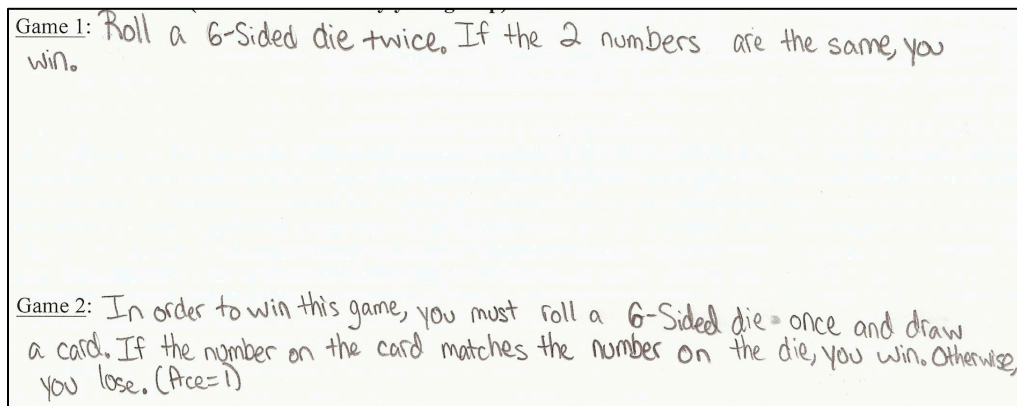 Game 1: Roll a 6-Sided die twice. If the 2 numbers are the same, you
win.
Game 2: In order to win this game, you must roll a 6-Sided die once and draw
a card. If the number on the card matches the number on the die, you win. Otherwise,
you lose. (Ace=1)